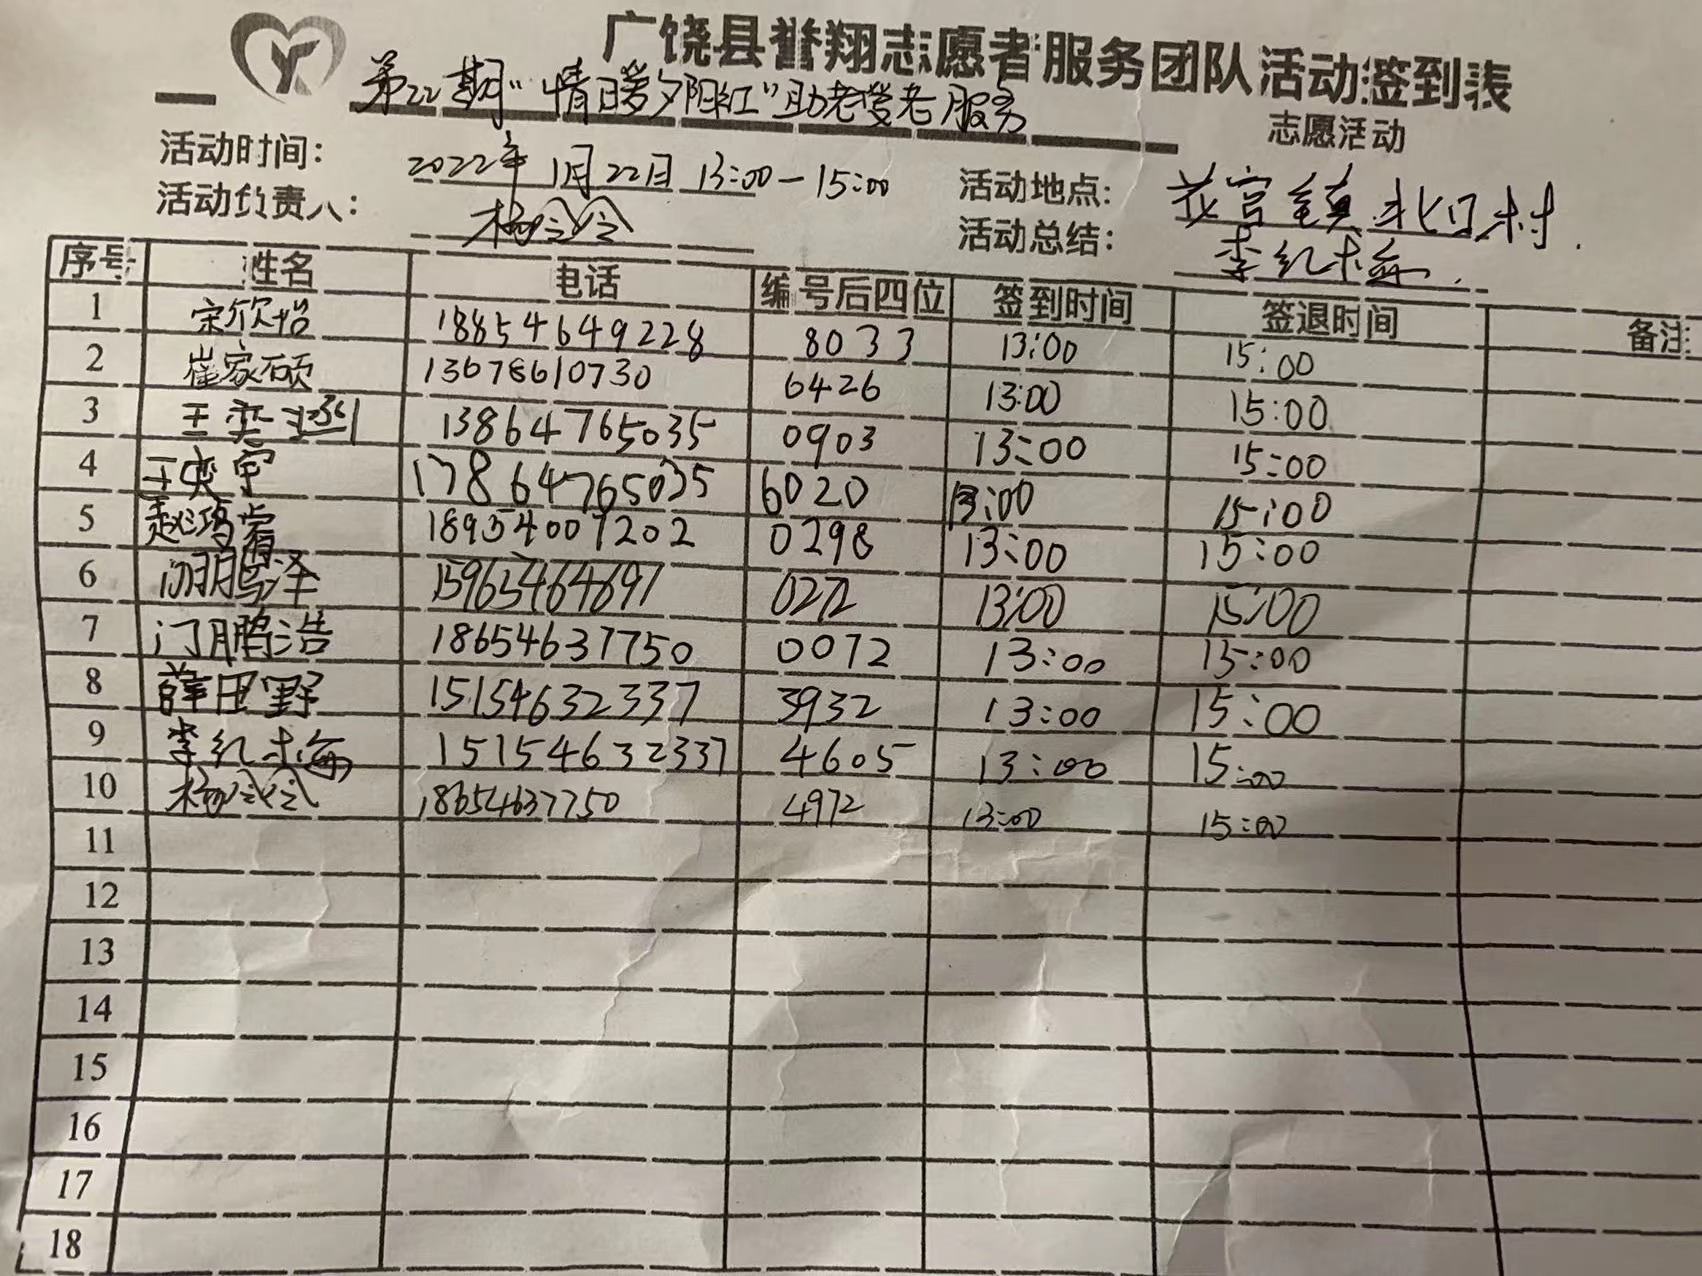 广饶县誉翔志愿者服务团队活动签到表
第22期“情暖夕阳红”助老爱老服务 志愿活动
活动时间: 2022年1月22日 13:00-15:00 活动地点: 花官镇北口村.
活动负责人: 杨会会 活动总结: 李红梅.
序号 姓名 电话 编号后四位 签到时间 签退时间 备注
1 宋欣怡 18854649228 8033 13:00 15:00
2 崔家硕 13678610730 6426 13:00 15:00
3 王奕 13864765035 0903 13:00 15:00
4 王奕宇 17864765035 6020 13:00 15:00
5 赵鸿睿 18954007202 0298 13:00 15:00
6 门鹏泽 15965464697 13:00 15:00
7 门鹏浩 18654637750 0072 13:00 15:00
8 薛田野 15154632337 3932 13:00 15:00
9 李红梅 15154632337 4605 13:00 15:00
10 杨会会 18654637750 4972 13:00 15:00
11
12
13
14
15
16
17
18